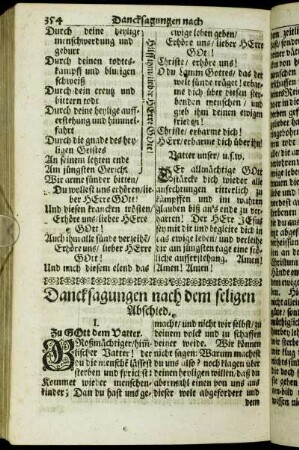 354 Dancksagungen nach
Durch deine heylige
menschwerdung und
geburt
Durch deinen todes-
kampff und blutigen
schweiß
Durch dein creutz und
bittern todt
Durch deine heylige auff-
erstehung und himmel-
fahrt
Durch die gnade des hey-
ligen Geistes
An seinem letzten ende
Am jüngsten Gericht
Hilff ihm lieber HErre GOtt!
Wir arme sünder bitten/
Du wollest uns erhören/lie-
ber HErre GOtt!
Und diesen krancken trösten/
Erhöre uns/lieber HErre
GOtt!
Auch ihm alle sünde verzeihē/
Erhöre uns/ lieber HErre
GOtt!
Und nach diesem elend das
ewige leben geben/
Erhöre uns/ lieber HErre
GOtt!
O du Lamm Gottes/ das der
welt sünde träget/ erbar-
me dich über diesen
menschen/ und
gib ihm deinen ewigen
frieden!
Christe/ erbarme dich!
HErr/ erbarme dich über ihn!
Vatter unser/ u.s.w.
DEr allmächtige GOtt
stärcke dich wieder alle
anfechtungen ritterlich zu
kämpffen und im wahren
glauben biß an's ende zu ver-
harren! Der HErr JEsus
sey mit dir und begleite dich in
das ewige leben/ und verleihe
dir am jüngsten tage eine frö-
liche aufferstehung. Amen!
Amen! Amen!
Dancksagungen nach dem seligen
Abschied.
I.
Zu GOtt dem Vatter.
GRoßmächtiger/him̄-
lischer Vatter! der
du die menschē lässest
sterben und sprichst:
Kommet wieder menschen-
kinder; Du hast uns ge-
macht/ und nicht wir selbst/ zu
deinem volck und zu schaffen
deiner weide. Wir können
nicht sagen: Warum machst
du uns also? noch klagen über
deinen heiligen willen/ daß du
abermahl einen von uns aus
dieser welt abgefordert und
dem